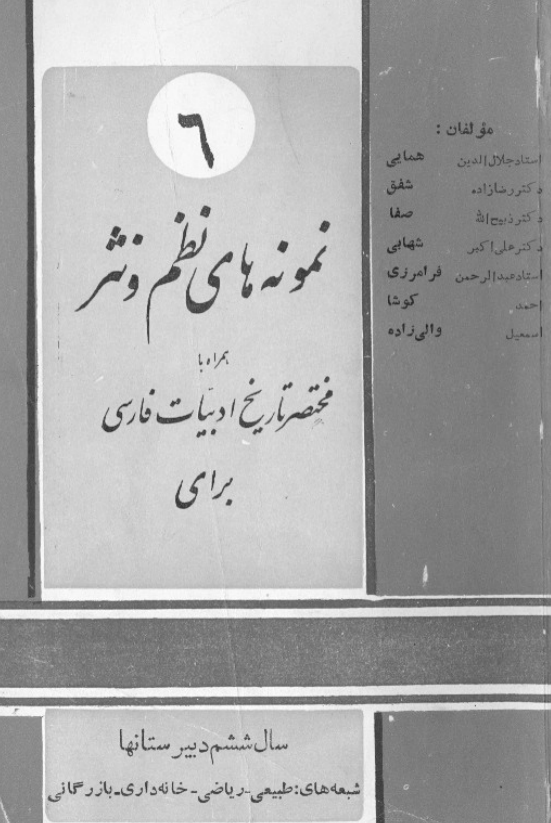 مؤلفان :
استاد جلال‌الدین همایی
دکتر رضازاده شفق
دکتر ذبیح‌الله صفا
دکتر علی‌اکبر شهابی
استاد عبدالرحمن فرامرزی
احمد کوشا
اسمعیل والی‌زاده
٦
نمونه های نظم و نثر
همراه با
مختصر تاریخ ادبیّات فارسی
برای
سال ششم دبیرستانها
شبعه‌های: طبیعی - ریاضی - خانه‌داری - بازرگانی